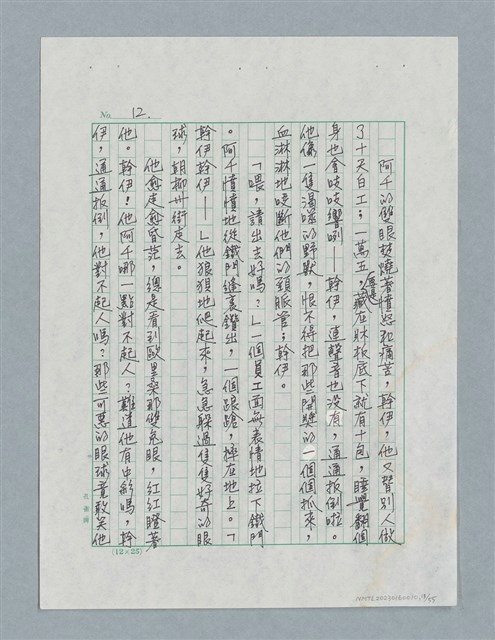 No. 12.
阿千的雙眼焚燒著憤怒和痛苦，幹伊，他又替別人做
了十天白工；一萬五，還是藏在床板底下就有十包，睡覺翻個
身也會吱吱響咧——幹伊，連聲音也沒有，通通扳倒啦。
他像一隻渴噬的野獸，恨不得把那些開獎的一個個抓來，
血淋淋地咬斷他們的頸脈管；幹伊。
「喂，請出去好嗎？」一個員工面無表情地拉下鐵門
。阿千憤憤地從鐵門縫裏鑽出，一個踉蹌，摔在地上。「
幹伊幹伊——」他狼狽地爬起來，急急躲過隻隻好奇的眼
球，朝柳州街走去。
他愈走愈昏茫，總是看到歐里桑那雙兔眼，紅紅瞪著
他。幹伊！他阿千哪一點對不起人？難道他有中彩嗎，幹
伊，通通扳倒，他對不起人嗎？那些可惡的眼球竟敢笑他
(12×25)
NMTL20070180010 13/55